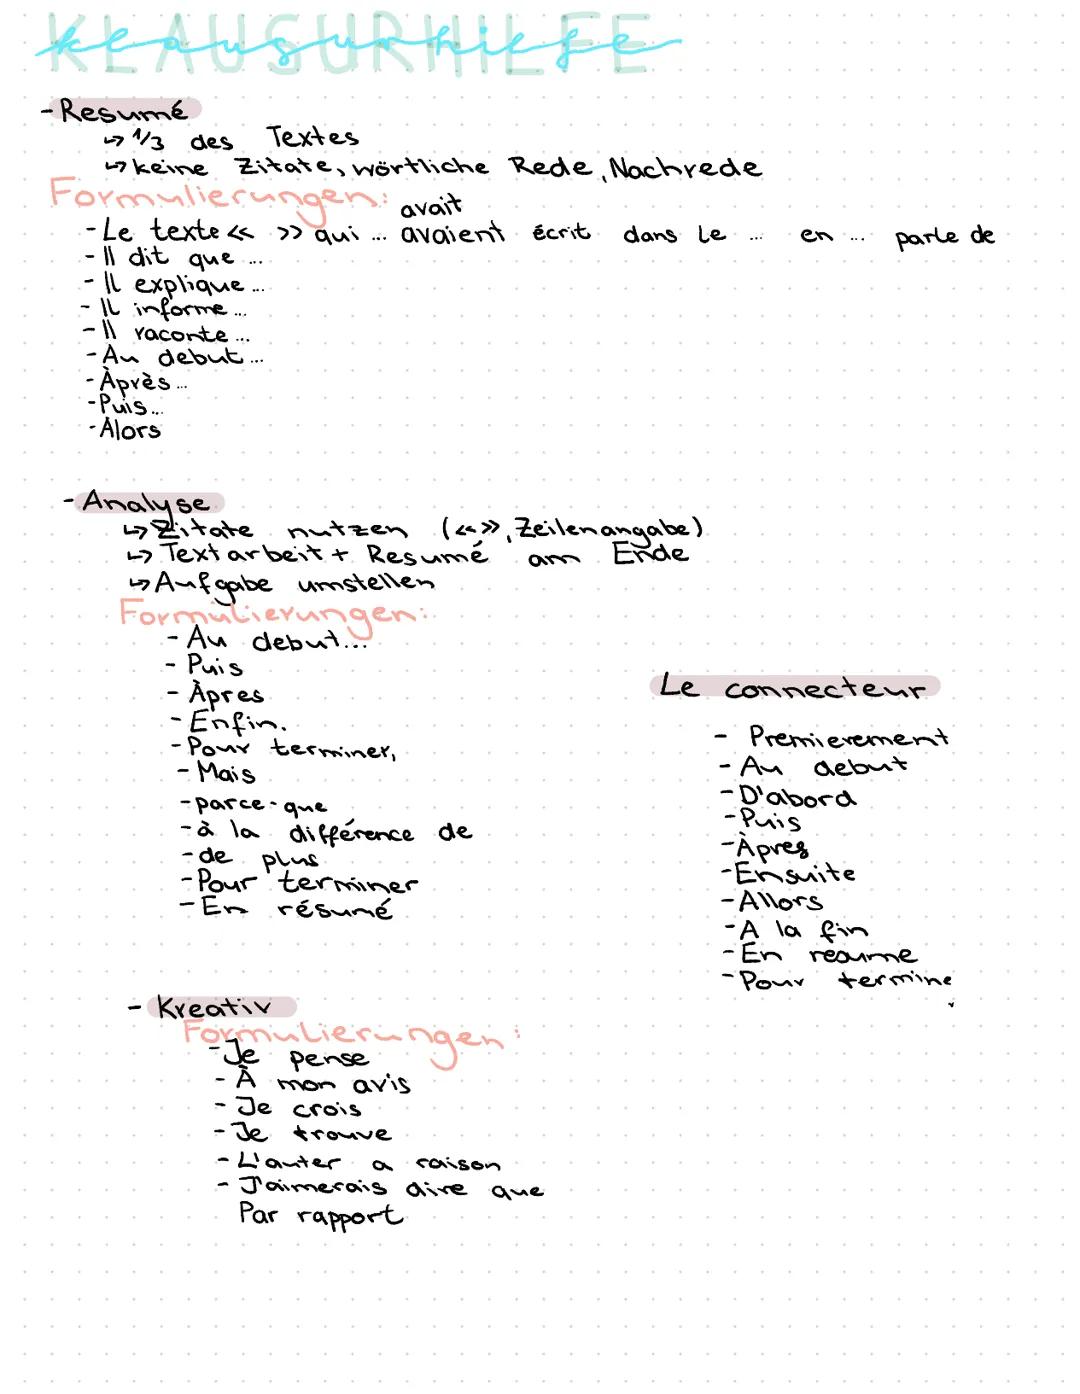 KLAUSURHILFE
klausurhilfe
- Resumé
↳ 1/3 des Textes
↳ keine Zitate, wörtliche Rede, Nachrede
Formulierungen:
avait
- Le texte « » qui ... avaient écrit dans le ... en ... parle de
- Il dit que ...
- Il explique ...
- Il informe ...
- Il raconte ...
- Au debut ...
- Àprès ...
- Puis ...
- Alors
- Analyse
↳ Zitate nutzen (« », Zeilenangabe)
↳ Textarbeit + Resumé am Ende
↳ Aufgabe umstellen
Formulierungen:
- Au debut...
- Puis
- Àpres
- Enfin.
- Pour terminer,
- Mais
- parce-que
- à la différence de
- de plus
- Pour terminer
- En résumé
Le connecteur
- Premierement
- Au debut
- D'abord
- Puis
- Àpres
- Ensuite
- Allors
- A la fin
- En reaume
- Pour termine
- Kreativ
Formulierungen:
- Je pense
- À mon avis
- Je crois
- Je trouve
- L'auter a raison
- J'aimerais dire que
Par rapport